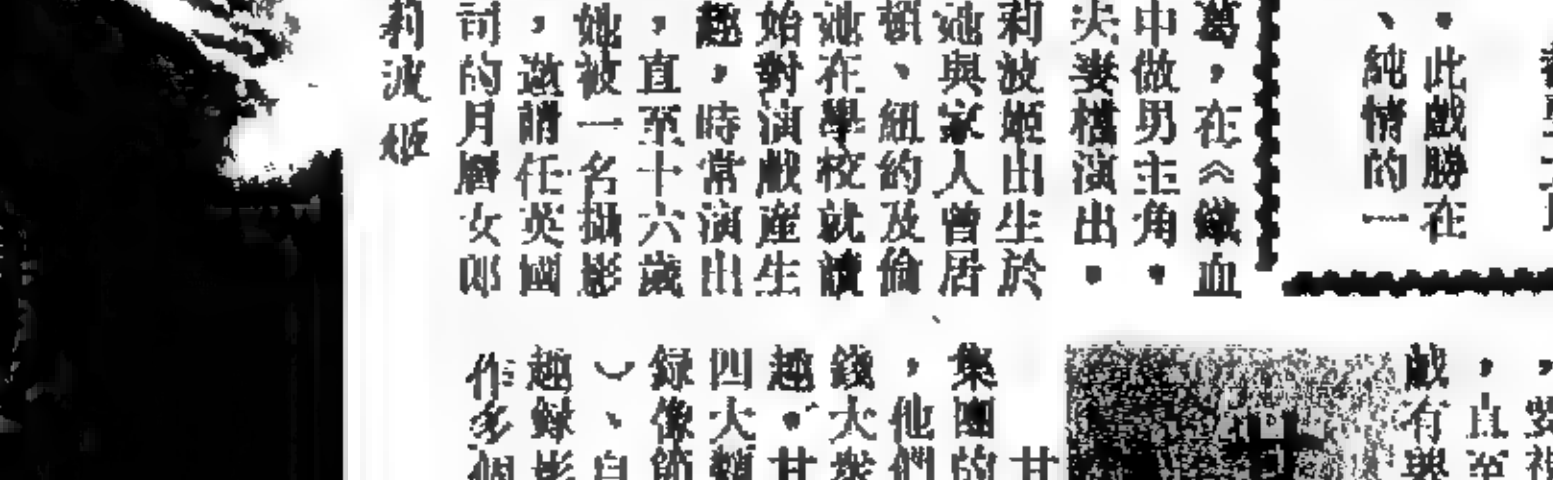 ・此戲勝在
、純情的一
葛，在《鐵血
中做男主角・
夫妻檔演出・
莉波姬出生於
她與家人曾居
頓、紐約及倫
她在學校就讀
始對演戲產生
趣，時常演出
，直至十六歲
她被一名攝影
，邀請任英國
司的月曆女郎
莉波姬
戲有
，直至
集團的
，他們
錢大
趣・甘
四大類
錄像節
︶、自
趣錄影
作多個